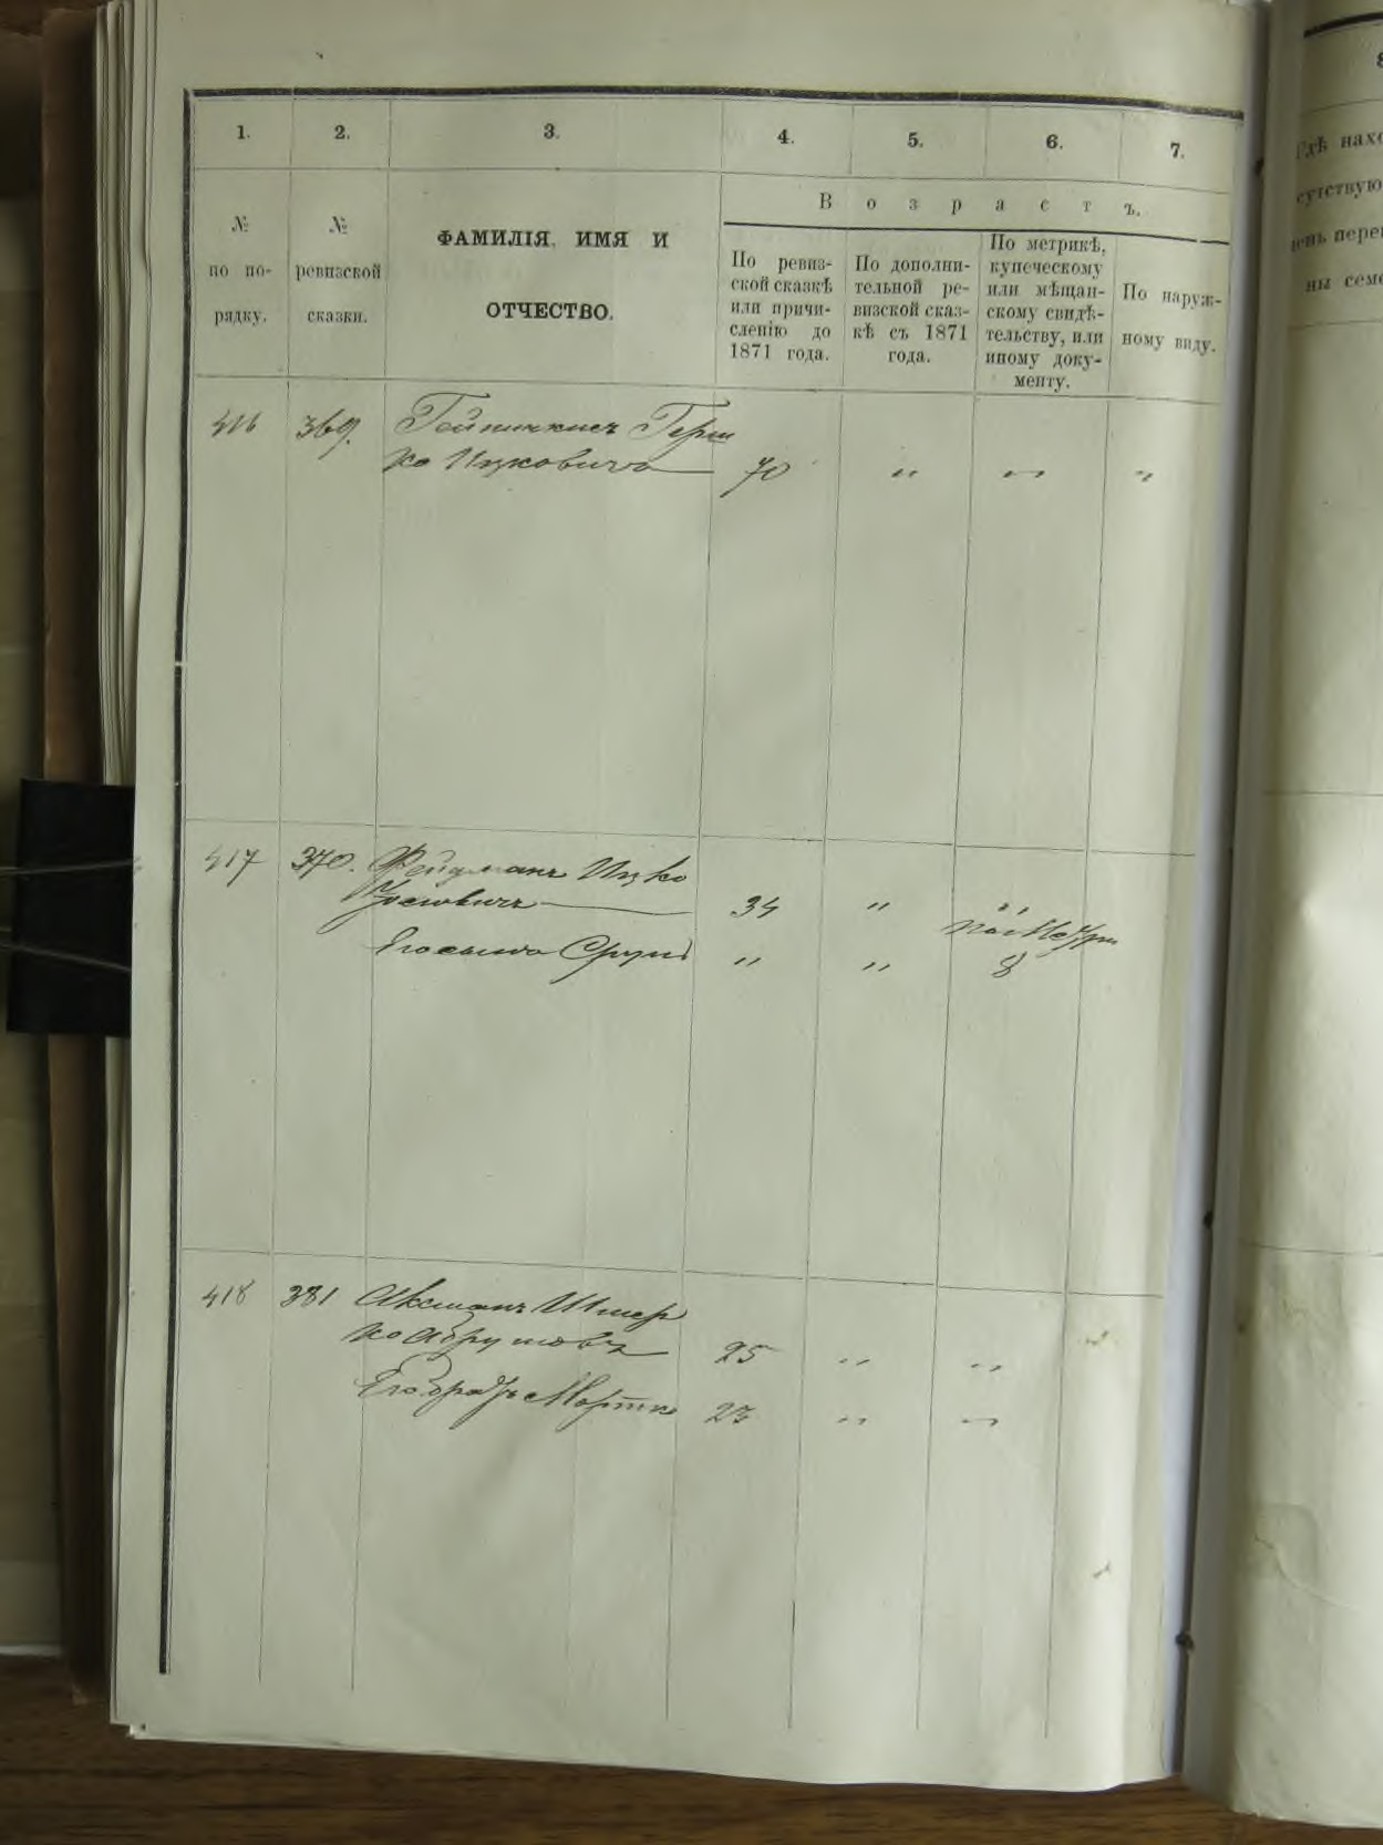 1. 2. 3. 4. 5. 6. 7.
№ по по-рядку.
№ ревизской сказки.
ФАМИЛІЯ, ИМЯ И
ОТЧЕСТВО.
Возрастъ.
По ревиз-
ской сказкѣ
или причи-
сленію до
1871 года.
По дополни-
тельной ре-
визской сказ-
кѣ съ 1871
года.
По метрикѣ,
купеческому
или мѣщан-
скому свидѣ-
тельству, или
иному доку-
менту.
По наруж-
ному виду.
416 369. Герш
ко Ицковичъ 70 " " "
417 370. Фейдманъ Ицко
34 " "
Его сынъ Сруль " " по метри
8
418 381 Аксманъ Шмер
ко Абрумовъ 25 " "
Его братъ Мортко 23 " "
8
Гдѣ нахо
сутствую
день пере
ны сем